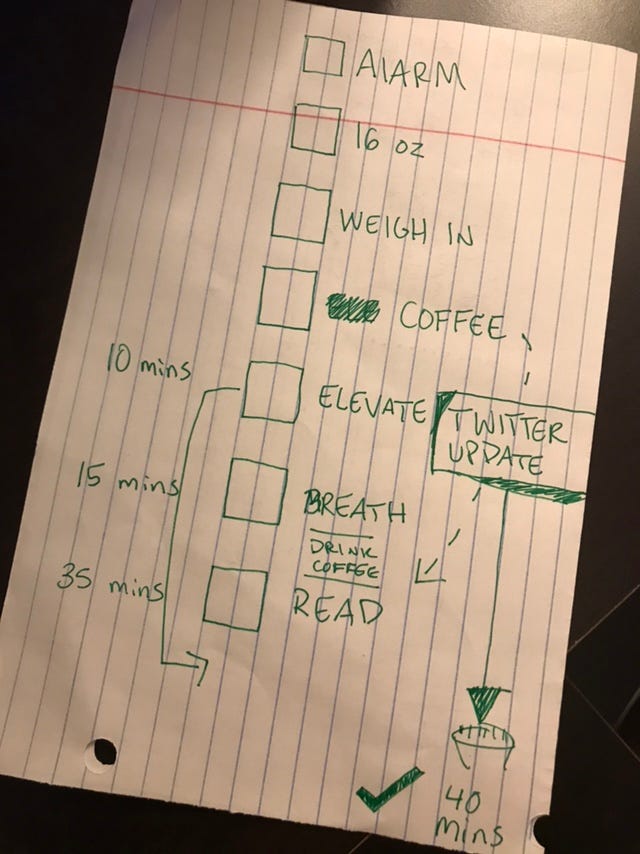 ALARM
16 OZ
WEIGH IN
COFFEE
10 mins
ELEVATE
TWITTER
UPDATE
15 mins
BREATH
DRINK
COFFEE
35 mins
READ
40
mins